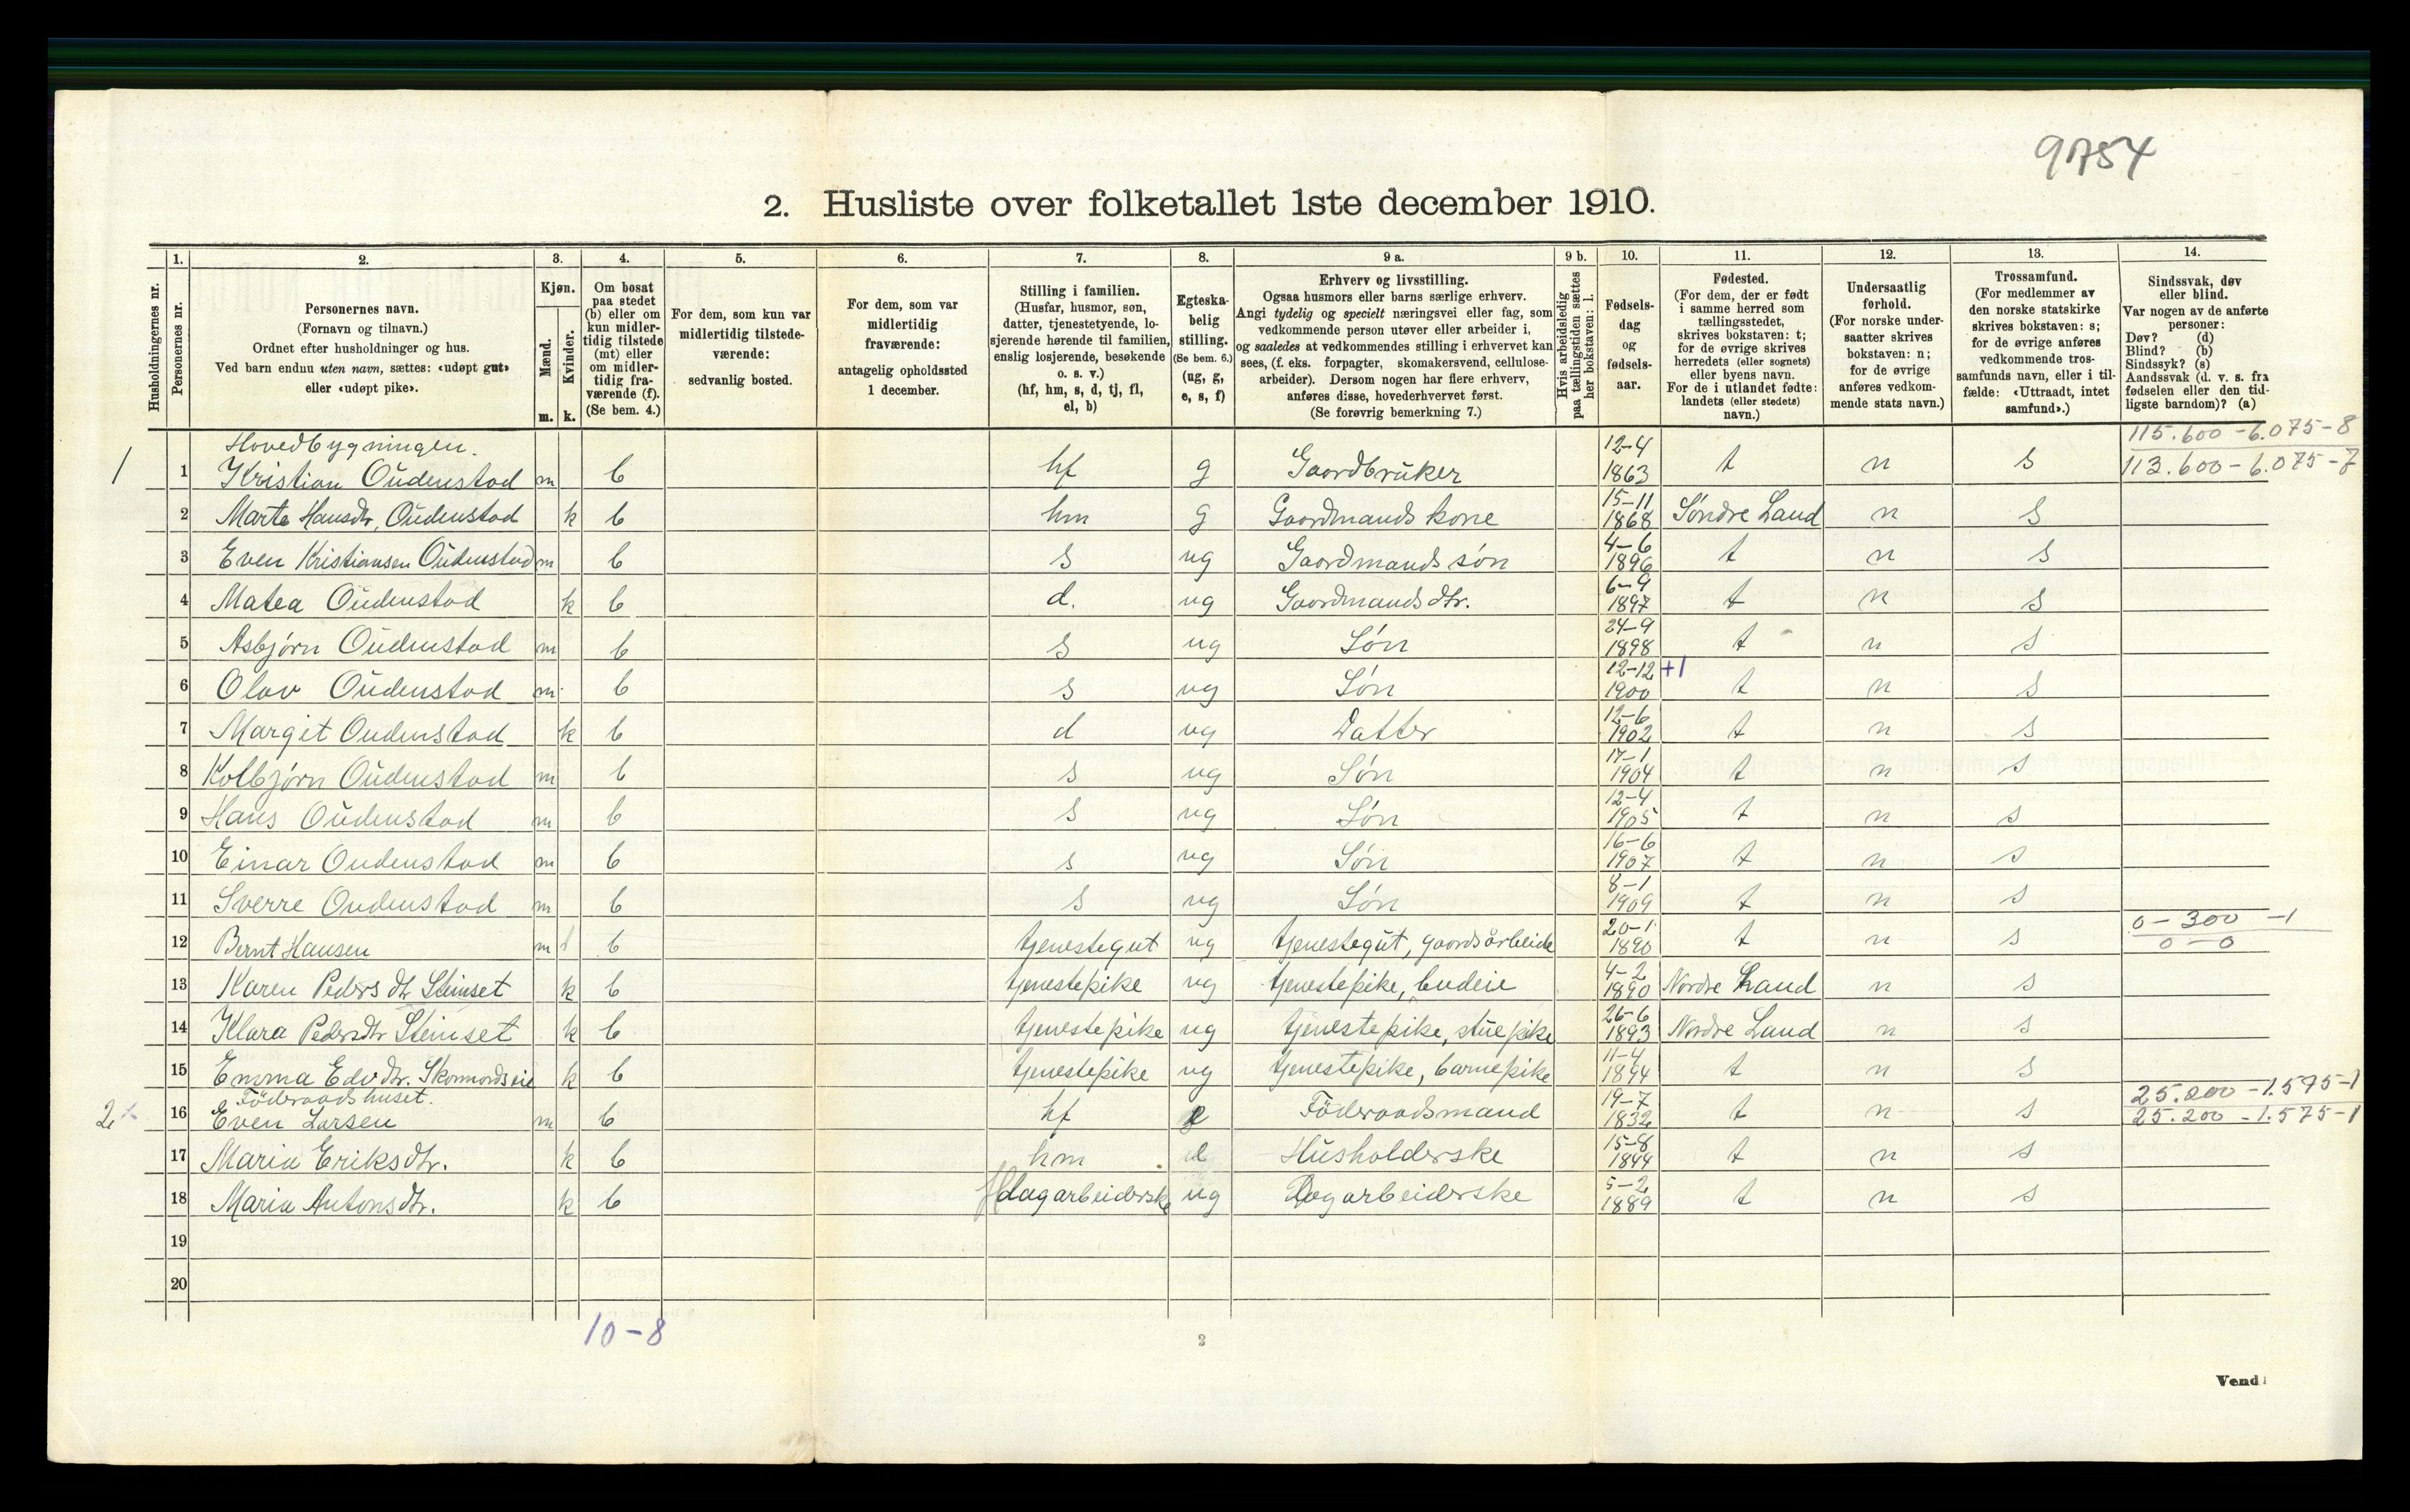 9754
2. Husliste over folketallet 1ste december 1910.
Husholdningernes nr.
1. Personernes nr.
2. Personernes navn.
(Fornavn og tilnavn.)
Ordnet efter husholdninger og hus.
Ved barn endnu uten navn, sættes: «udøpt gut»
eller «udøpt pike».
3. Kjøn.
Mænd. m.
Kvinder. k.
4. Om bosat
paa stedet
(b) eller om
kun midler-
tidig tilstede
(mt) eller
om midler-
tidig fra-
værende (f).
(Se bem. 4.)
5. For dem, som kun var
midlertidig tilstede-
værende:
sedvanlig bosted.
6. For dem, som var
midlertidig
fraværende:
antagelig opholdssted
1 december.
7. Stilling i familien.
(Husfar, husmor, søn,
datter, tjenestetyende, lo-
sjerende hørende til familien,
enslig losjerende, besøkende
o. s. v.)
(hf, hm, s, d, tj, fl,
el, b)
8. Egteska-
belig
stilling.
(Se bem. 6.)
(ug, g,
e, s, f)
9 a. Erhverv og livsstilling.
Ogsaa husmors eller barns særlige erhverv.
Angi tydelig og specielt næringsvei eller fag, som
vedkommende person utøver eller arbeider i,
og saaledes at vedkommendes stilling i erhvervet kan
sees, (f. eks. forpagter, skomakersvend, cellulose-
arbeider). Dersom nogen har flere erhverv,
anføres disse, hovederhvervet først.
(Se forøvrig bemerkning 7.)
9 b. Hvis arbeidsledig
paa tællingstiden sættes
her bokstaven: l.
10. Fødsels-
dag
og
fødsels-
aar.
11. Fødested.
(For dem, der er født
i samme herred som
tællingsstedet,
skrives bokstaven: t;
for de øvrige skrives
herredets (eller sognets)
eller byens navn.
For de i utlandet fødte:
landets (eller stedets)
navn.)
12. Undersaatlig
forhold.
(For norske under-
saatter skrives
bokstaven: n;
for de øvrige
anføres vedkom-
mende stats navn.)
13. Trossamfund.
(For medlemmer av
den norske statskirke
skrives bokstaven: s;
for de øvrige anføres
vedkommende tros-
samfunds navn, eller i til-
fælde: «Uttraadt, intet
samfund».)
14. Sindssvak, døv
eller blind.
Var nogen av de anførte
personer:
Døv? (d)
Blind? (b)
Sindssyk? (s)
Aandssvak (d. v. s. fra
fødselen eller den tid-
ligste barndom)? (a)
Hovedbygningen. 115.600 - 6.075 - 8
1 1 Kristian Oudenstad m b hf g Gaardbruker 12-4 1863 t n s 113.600 - 6.075 - 7
2 Marte Hansdtr, Oudenstad k b hm g Gaardmands kone 15-11 1868 Søndre Land n s
3 Even Kristiansen Oudenstad m b s ug Gaardmands søn 4-6 1896 t n s
4 Matea Oudenstad k b d. ug Gaardmands dtr. 6-9 1897 t n s
5 Asbjørn Oudenstad m b s ug Søn 24-9 1898 t n s
6 Olav Oudenstad m b s ug Søn 12-12 1900 +1 t n s
7 Margit Oudenstad k b d ug Datter 12-6 1902 t n s
8 Kolbjørn Oudenstad m b s ug Søn 17-1 1904 t n s
9 Hans Oudenstad m b s ug Søn 12-4 1905 t n s
10 Einar Oudenstad m b s ug Søn 16-6 1907 t n s
11 Sverre Oudenstad m b s ug Søn 8-1 1909 t n s
12 Bernt Hansen m b tjenestegut ug tjenestegut, gaardsarbeide 20-1 1890 t n s 0 - 300 - 1 0 - 0
13 Karen Pedersdtr Steinset k b tjenestepike ug tjenestepike, budeie 4-2 1890 Nordre Land n s
14 Klara Pedersdtr Steinset k b tjenestepike ug tjenestepike, stuepike 26-6 1893 Nordre Land n s
15 Emma Edvdtr. k b tjenestepike ug tjenestepike, barnepike 11-4 1894 t n s
Föderaadshuset. 25.200 - 1.575 - 1
2 16 Even Larsen m b hf e Föderaadsmand 19-7 1832 t n s 25.200 - 1.575 - 1
17 Maria Eriksdtr. k b hm e Husholderske 15-8 1844 t n s
18 Maria Antonsdtr. k b dagarbeiderske ug Dagarbeiderske 5-2 1889 t n s
19
20
10-8
3
Vend!